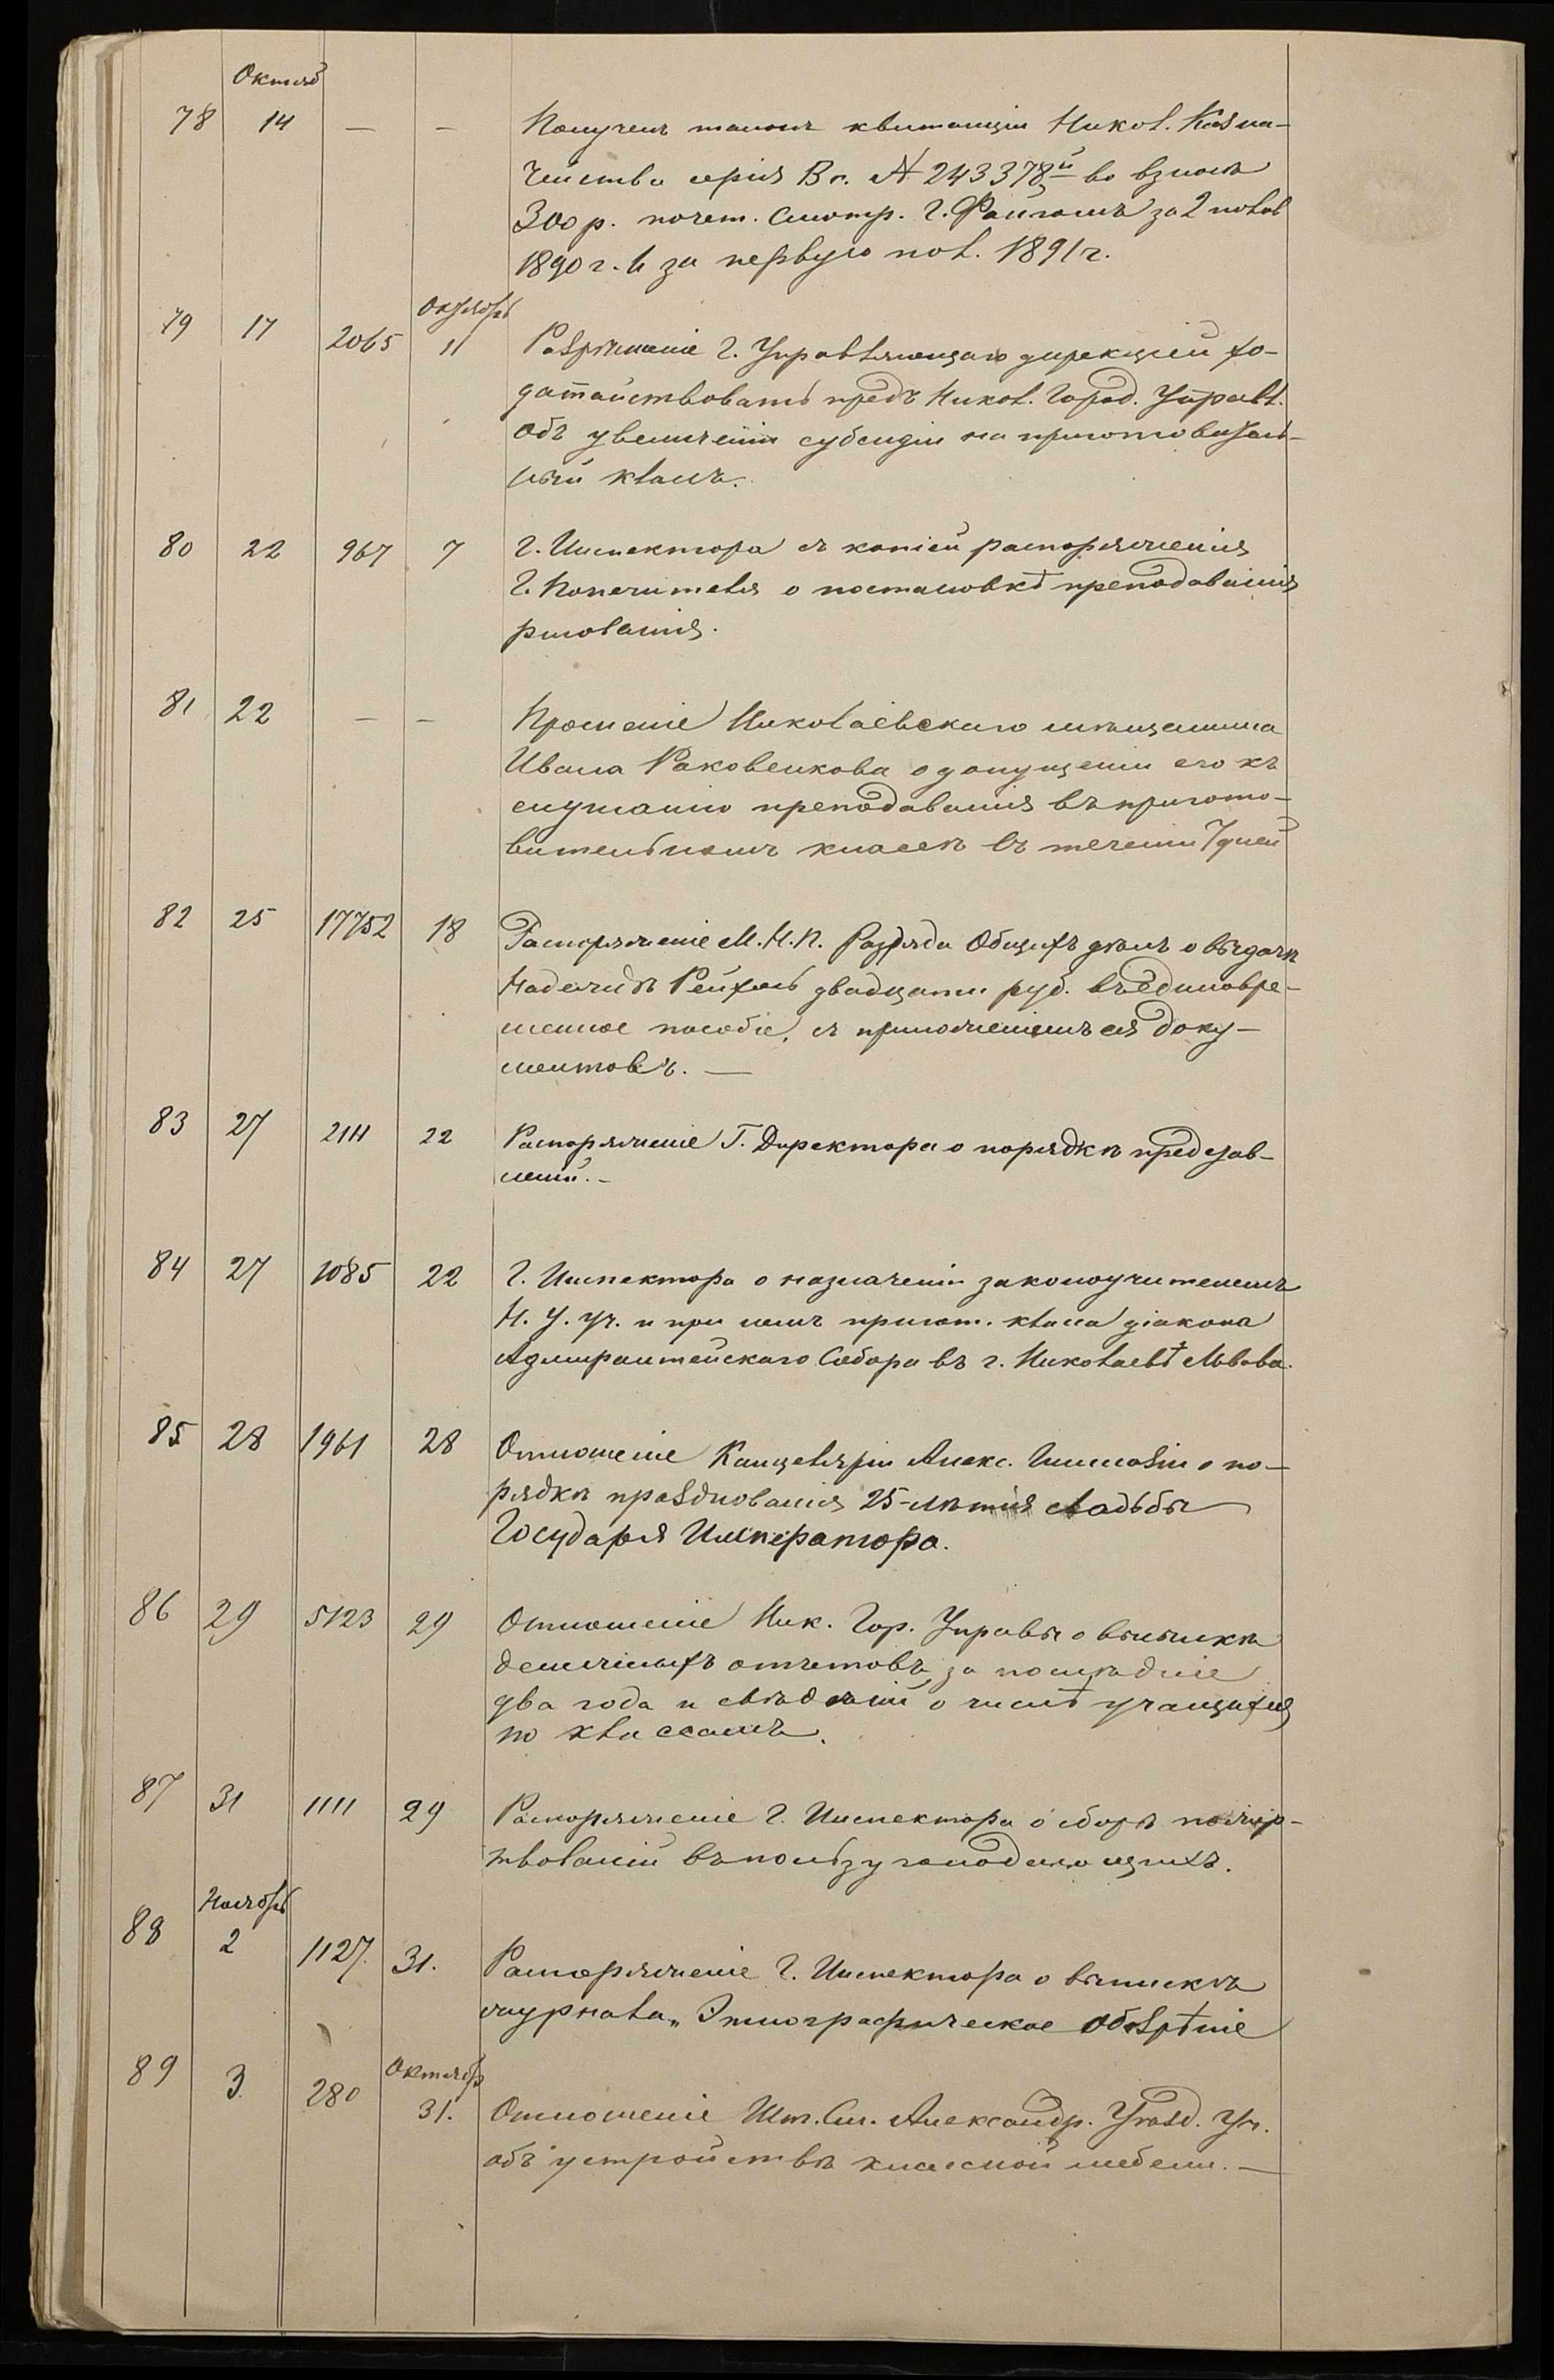 Октяб
78 14 — — Полученъ талонъ квитанціи Никол. Казна-
чейства серія В г. № 243378й во взносѣ
300 р. почет. смотр. г. Фойгомъ за 2 полов
1890 г. и за первую пол. 1891 г.
Октябрь
79 17 2065 11 Разрѣшеніе г. Управляющаго дирекціей хо-
датайствовать предъ Никол. Город. Управл.
объ увеличеніи субсидіи на приготовитель-
ный класъ.
80 22 967 7 г. Инспектора съ копіей распоряженія
г. Попечителя о постановкѣ преподаванія
рисованія.
81 22 — — Прошеніе Николаевскаго мѣщанина
Ивана Раковенкова о допущеніи его къ
слушанію преподаванія въ пригото-
вительномъ класѣ въ теченіи 7 дней
82 25 17752 18 Распоряженіе М. Н. П. Разряда Общихъ дѣлъ о выдачѣ
Надеждѣ Рейхель двадцати руб. въ единовре-
менное пособіе, съ приложеніемъ ея доку-
ментовъ. —
83 27 2114 22 Распоряженіе Г. Директора о порядкѣ представ-
леній. —
84 27 1085 22 г. Инспектора о назначеніи законоучителемъ
Н. У. Уч. и при немъ пригот. класа діакона
Адмиралтейскаго Собора въ г. Николаевѣ Львова.
85 28 1961 28 Отношеніе Канцеляріи Алекс. Гимназіи о по-
рядкѣ празднованія 25-лѣтія свадьбы
Государя Императора.
86 29 5123 29 Отношеніе Ник. Гор. Управы о высылкѣ
денежныхъ отчетовъ за послѣдніе
два года и свѣденій о числѣ учащихся
по классамъ.
87 31 1111 29 Распоряженіе г. Инспектора о сборѣ пожер-
твованій въ пользу голодающихъ.
Ноябрь
88 2 1127. 31. Распоряженіе г. Инспектора о выпискѣ
журнала „Этнографическое обозрѣніе
Октябр
89 3 280 31. Отношеніе Шт. См. Александр. Уѣзд. Уч.
объ устройствѣ класной мебели. —